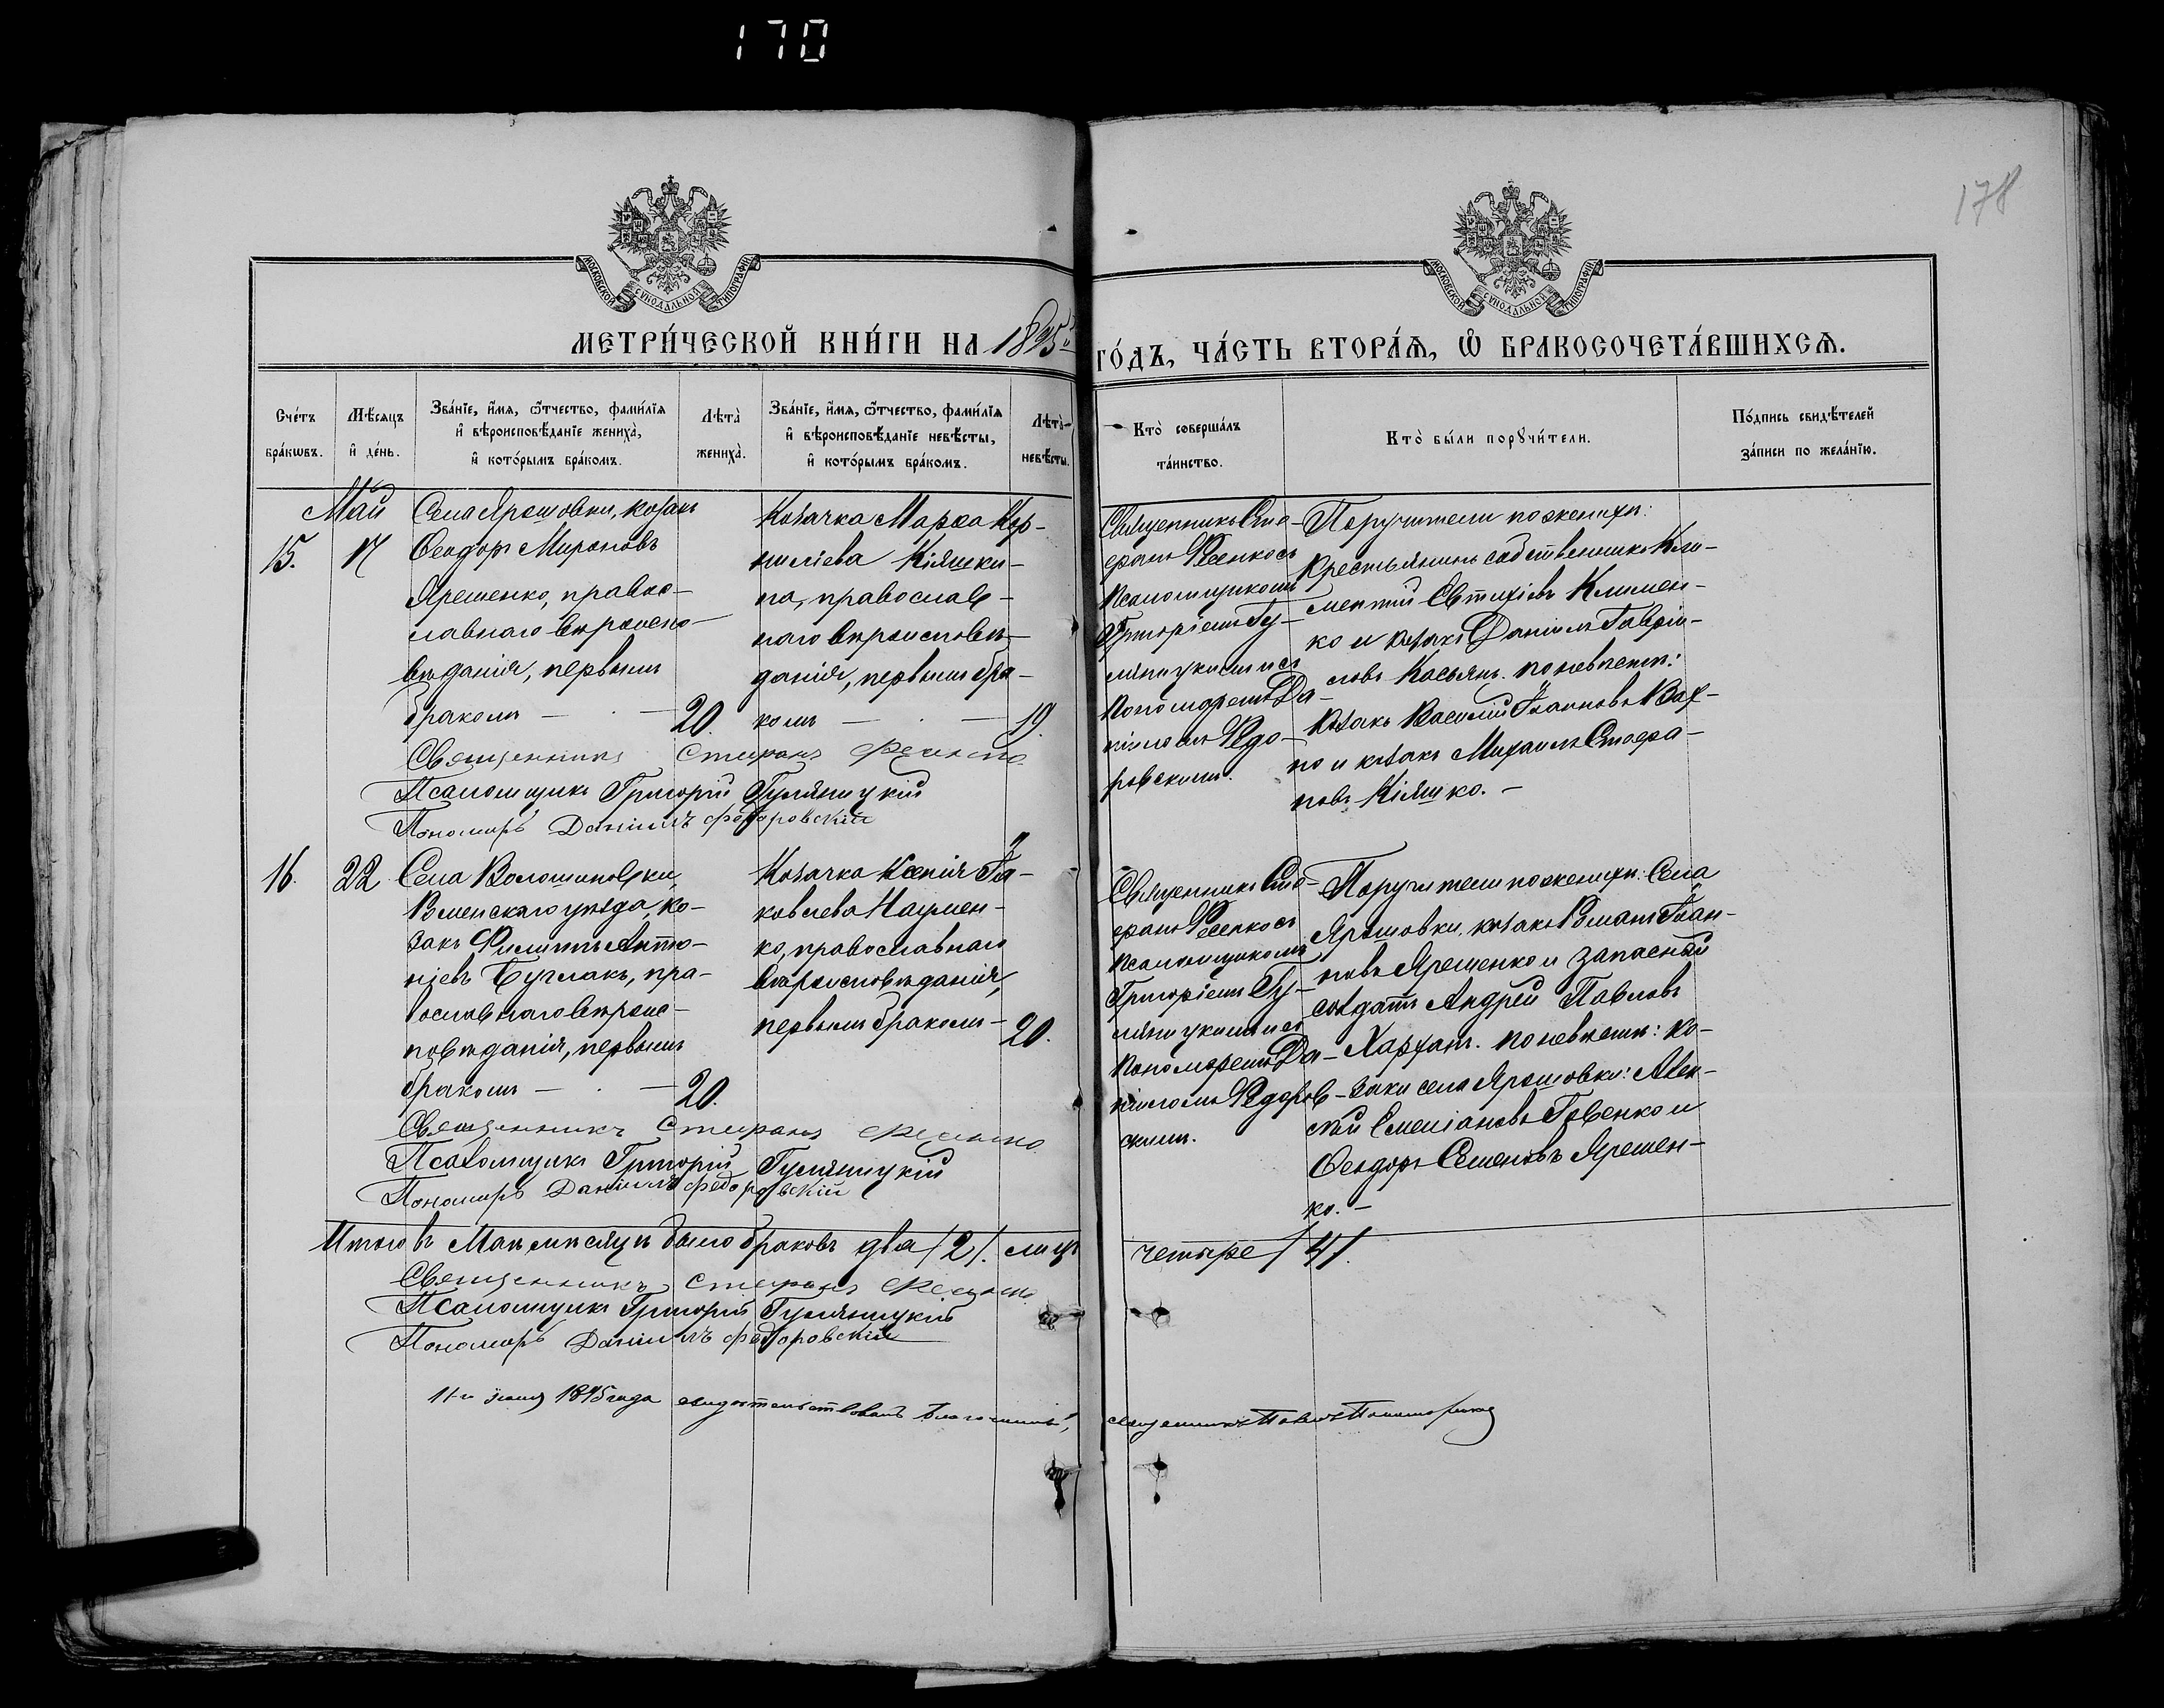 170
178
МОСКОВСКОЙ СѴНОДАЛЬНОЙ ТИПОГРАФІИ
МОСКОВСКОЙ СѴНОДАЛЬНОЙ ТИПОГРАФІИ
МЕТРИ́ЧЕСКОЙ КНИ́ГИ НА 1895й ГО́ДЪ, ЧА́СТЬ ВТОРА́Ѧ, Ѡ҆ БРАКОСОЧЕТА́ВШИХСѦ.
Сче́тъ
бра́кѡвъ.
Мѣ́сяцъ
и҆ де́нь.
Зва́нїе, и҆́мѧ, ѻ҆́тчество, фами́лїѧ
и҆ вѣроисповѣ́данїе жениха̀,
и҆ кото́рымъ бра́комъ.
Лѣта̀
жениха̀.
Зва́нїе, и҆́мѧ, ѻ҆́тчество, фами́лїѧ
и҆ вѣроисповѣ́данїе невѣ́сты,
и҆ кото́рымъ бра́комъ.
Лѣта̀
невѣ́сты.
Кто̀ соверша́лъ
та́инство.
Кто̀ бы́ли порꙋчи́тели.
По́дпись свидѣ́телей
за́писи по жела́нїю.
Май
15.
17
Села Ярошовки, козакъ
Ѳеодоръ Мироновъ
Ярешенко, правос-
лавнаго вѣроиспо-
вѣданія, первымъ
бракомъ — · —
20.
Козачка Марѳа Кор-
ниліева Кіяшки-
на, православ-
наго вѣроисповѣ-
данія, первымъ бра-
комъ — · —
19.
Священникъ Сте-
фанъ Фесенко съ
псаломщикомъ
Григоріемъ Гу-
ляницкимъ и съ
пономаремъ Да-
ніиломъ Ѳедо-
ровскимъ.
Поручители по женихѣ:
крестьянинъ собственникъ Кли-
ментій Евтихіевъ Климен-
ко и козакъ Даніилъ Гаврiи-
ловъ Касьянъ. по невѣстѣ:
козакъ Василій Іоанновъ Вах-
но и козакъ Михаилъ Стефа-
новъ Кіяшко. —
Священникъ Стефанъ Фесенко
Псаломщикъ Григорій Гуляницкій
Пономарь Даніилъ Федоровскій
16.
22
Села Волошиновки,
Роменскаго уѣзда, ко-
закъ Филиппъ Анто-
ніевъ Буглакъ, пра-
вославнаго вѣроис-
повѣданія, первымъ
бракомъ — · —
20.
Козачка Ксенія Іа-
ковлева Наумен-
ко, православнаго
вѣроисповѣданія,
первымъ бракомъ —
20.
Священникъ Сте-
фанъ Фесенко съ
псаломщикомъ
Григоріемъ Гу-
ляницкимъ и съ
пономаремъ Да-
ніиломъ Ѳедоров-
скимъ.
Поручители по женихѣ: Села
Ярошовки, козакъ Романъ Іоан-
новъ Ярешенко и запасный
солдатъ Андрей Павловъ
Харханъ. по невѣстѣ: ко-
заки села Ярошовки: Алек-
сѣй Емеліановъ Говенко и
Ѳеодоръ Семеновъ Ярешен-
ко. —
Священникъ Стефанъ Фесенко
Псаломщикъ Григорій Гуляницкій
Пономарь Даніилъ Федоровскій
Итого въ Маѣ мѣсяцѣ было браковъ два /2/. лицъ четыре /4/.
Священникъ Стефанъ Фесенко
Псаломщикъ Григорій Гуляницкій
Пономарь Даніилъ Федоровскій
11-го іюня 1895 года свидѣтельствовалъ благочинный, священникъ Павелъ